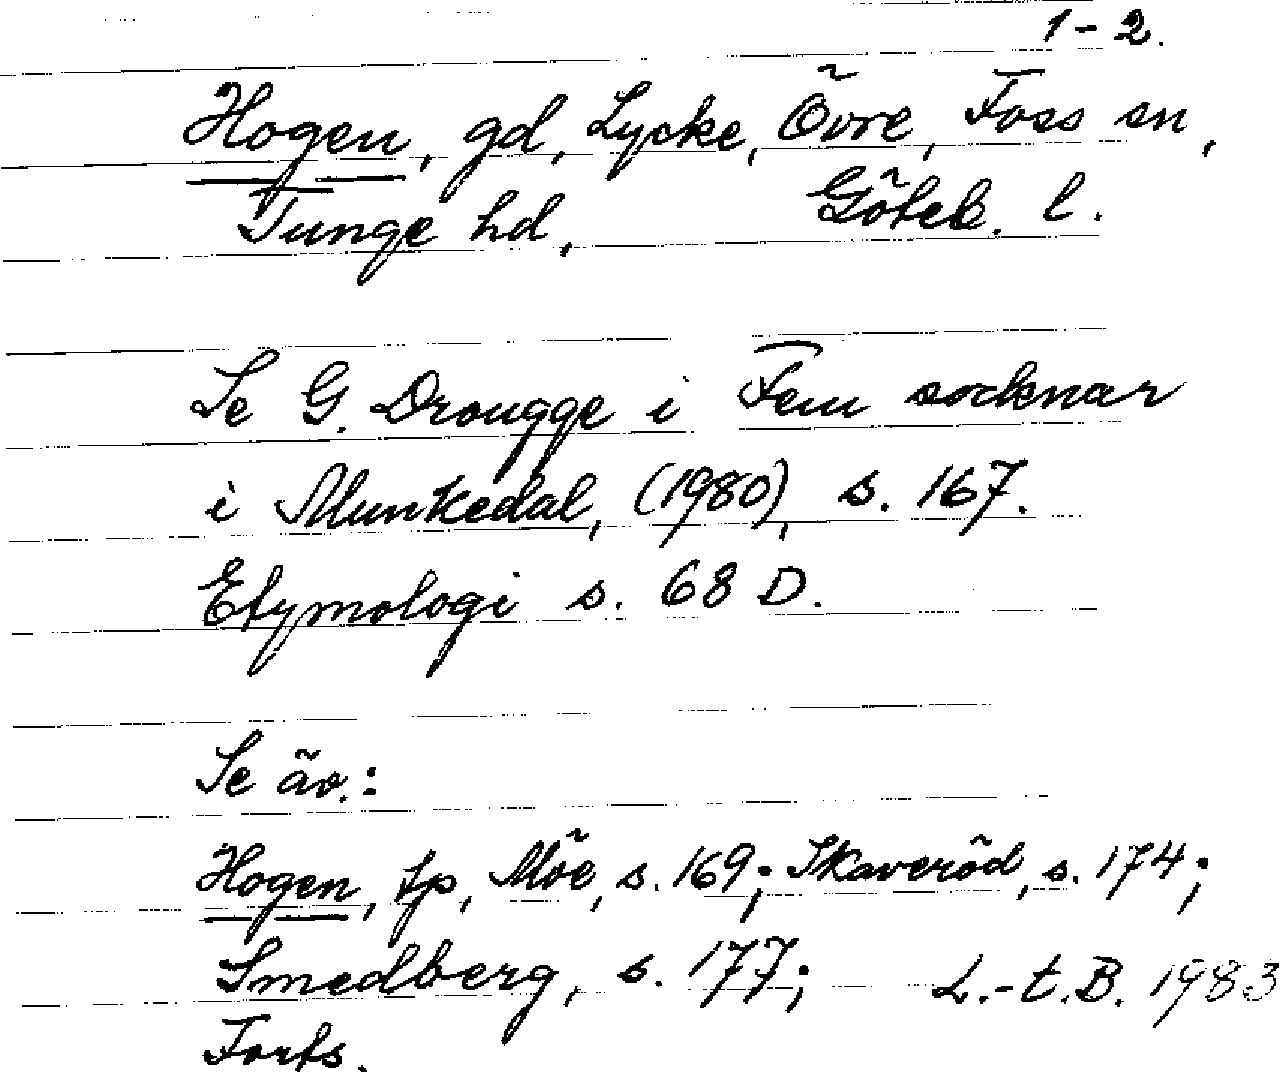 1-2.
Hogen, gd, Lycke, Övre, Foss sn,
Tunge hd, Göteb. l.
Se G. Drougge i Fem socknar
i Munkedal, (1980), s. 167.
Etymologi s. 68 D.
Se äv.:
Hogen, tp, Möe, s. 169; Skaveröd, s. 174;
Smedberg, s. 177; L.-t.B. 1983
Forts.